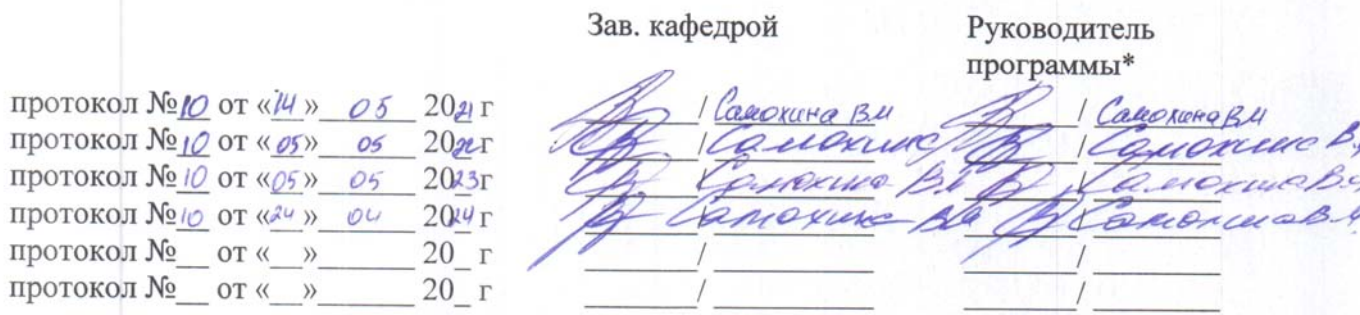 Зав. кафедрой Руководитель
программы*
протокол №10 от «14» 05 2021 г / Самохина ВМ / Самохина ВМ
протокол №10 от «05» 05 2022г / Самохина / Самохина В.
протокол №10 от «05» 05 2023г / Самохина В.М / Самохина В.М
протокол №10 от «24» 04 2024г Самохина ВМ Самохина В.М
протокол №__ от «__»______ 20_ г / /
протокол №__ от «__»______ 20_ г / /